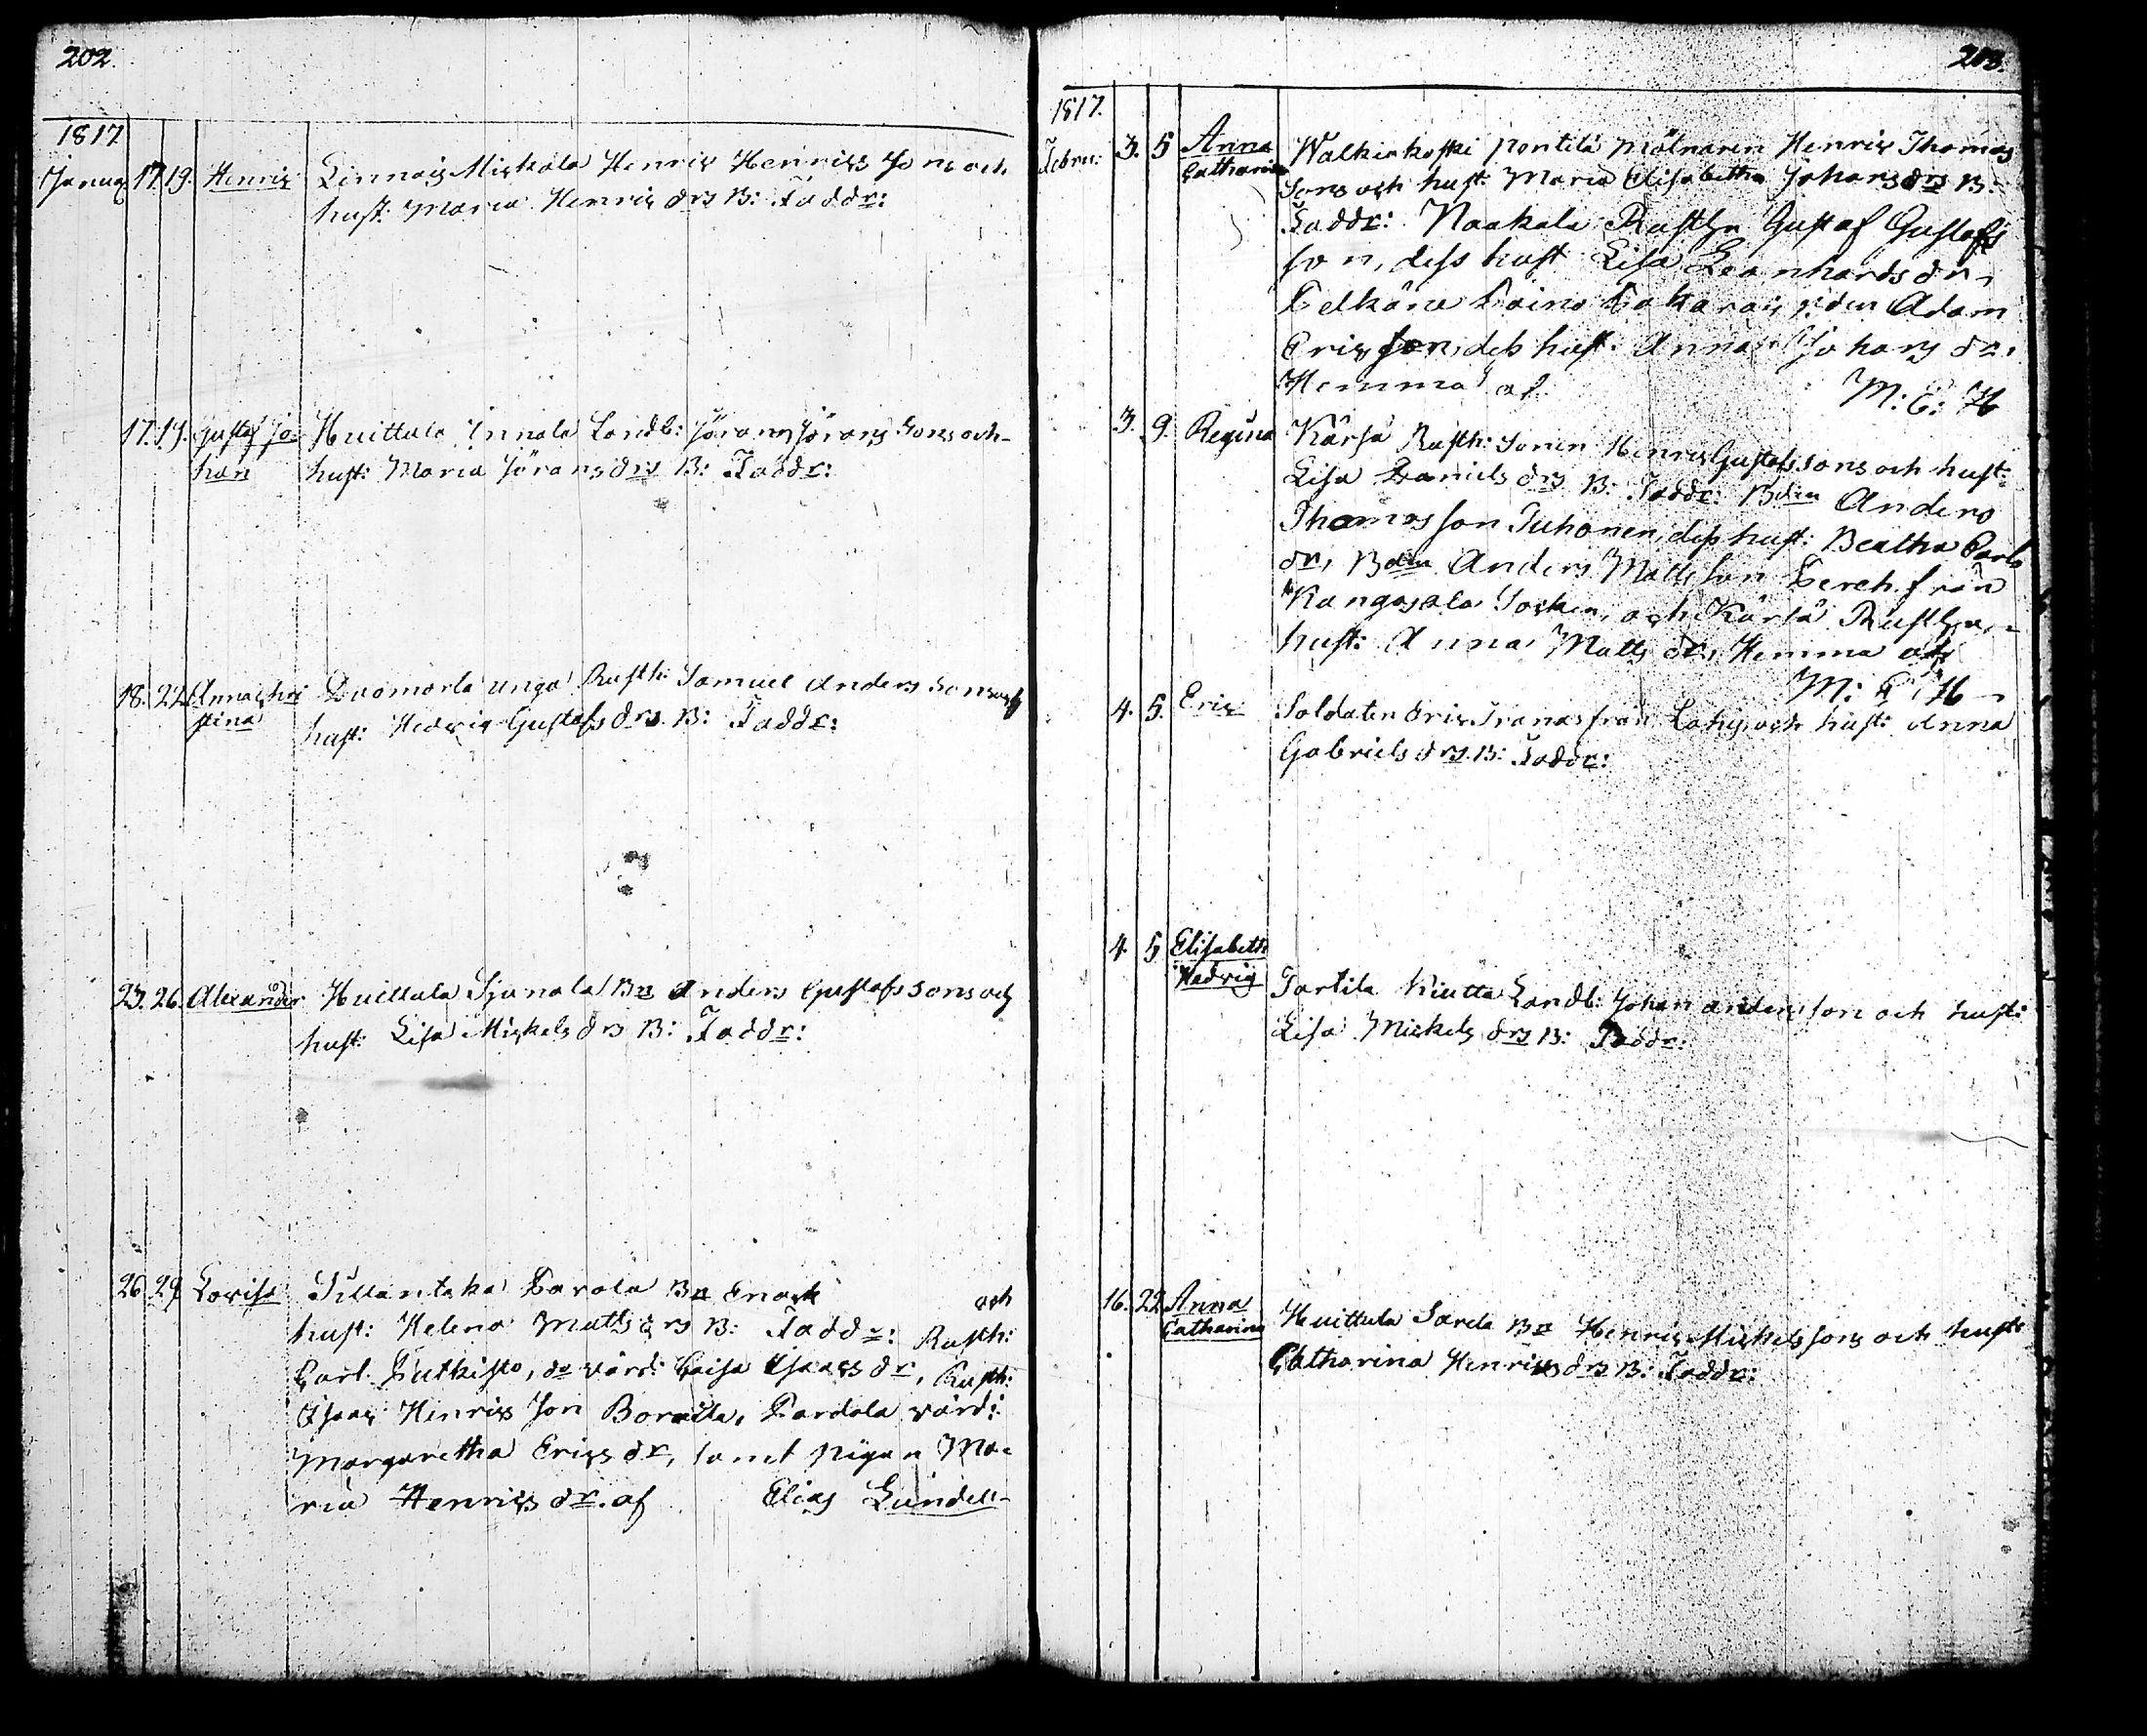 202.
1817
Januar 17. 19. Henric Linnais Mickola Henric Henricss Sons och
hust: Maria Henrics drs B: Faddr:
17. 19. Gustaf Jo- Huittula Innala Landb: Jörans Jörans Sons och
han hust: Maria Jörans drs B: Faddr:
18. 22 Anna Chri Duomarla unga Rusth: Samuel Anders Sons och
stina hust: Hedvig Gustafs drs. B: Faddr:
23. 26. Alexander Huittula Sjunala Bn Anders Gustafs sons och
hust: Lisa Mickels drs B: Faddr:
26 29 Lovisa Tillantaka Parola Bn Enock och
hust: Helena Matts drs B: Faddr: Rusth:
Carl Putkisto, dn värd: Caisa Isaacs dr, Rusth:
Isaac Henrics Son Bornila, Pardola värd:
Margaretha Erics dr, samt pigan Ma-
ria Henrics dr. af Elias Lundell
203.
1817.
Febru: 3. 5 Anna Walkiakoski Pentilä Mölnaren Henric Thomas
Catharina Sons och hust: Maria Elisabetha Johans drs B:
Faddr: Naakala Rusth Gustaf Gustafs
son, dess hust Lisa Leonhards dr,
Adam
Erics son, dess hust. Anna Johans dr.
Hemma af M: E: H
3. 9. Regina Kärsä Rusth: Sonen Henric Gustafs sons och hust:
Lisa Daniels drs B: Faddr: Bdn Anders
Thomas son Tuhonen, dess hust: Beatha Carls
dr, Bdn Anders Matts son Lerch från
Kangasala Socken, och Kärsä Rusth
hust: Anna Matts dr, Hemma af
M: E: H
4. 5. Eric Soldaten Eric Tranas från Lahis, och hust: Anna
Gabriels drs. B: Faddr:
4. 5 Elisabeth
Hedvig Tartila Kiutta Landb: Johan Anders son och hust:
Lisa Mickels drs B: Faddr:
16. 22 Anna Huittula Sarela Bn Henric Mickels sons och hust:
Catharina Catharina Henrics drs B: Faddr: